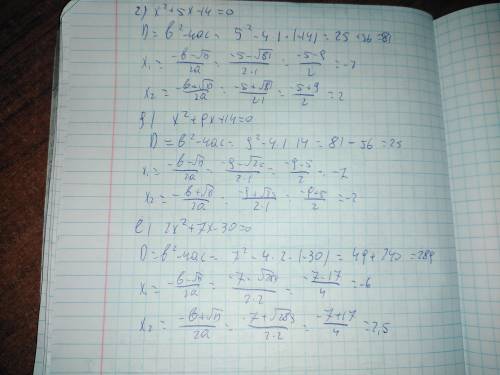 г) x²+5x-14=0
D = b²-4ac = 5²-4·1·(-14) = 25+56=81
x₁ = -b-√D/2a = -5-√81/2·1 = -5-9/2 = -7
x₂ = -b+√D/2a = -5+√81/2·1 = -5+9/2 = 2
д) x²+9x+14=0
D = b²-4ac = 9²-4·1·14 = 81-56=25
x₁ = -b-√D/2a = -9-√25/2·1 = -9-5/2 = -7
x₂ = -b+√D/2a = -9+√25/2·1 = -9+5/2 = -2
е) 2x²+7x-30=0
D = b²-4ac = 7²-4·2·(-30) = 49+240=289
x₁ = -b-√D/2a = -7-√289/2·2 = -7-17/4 = -6
x₂ = -b+√D/2a = -7+√289/2·2 = -7+17/4 = 2,5